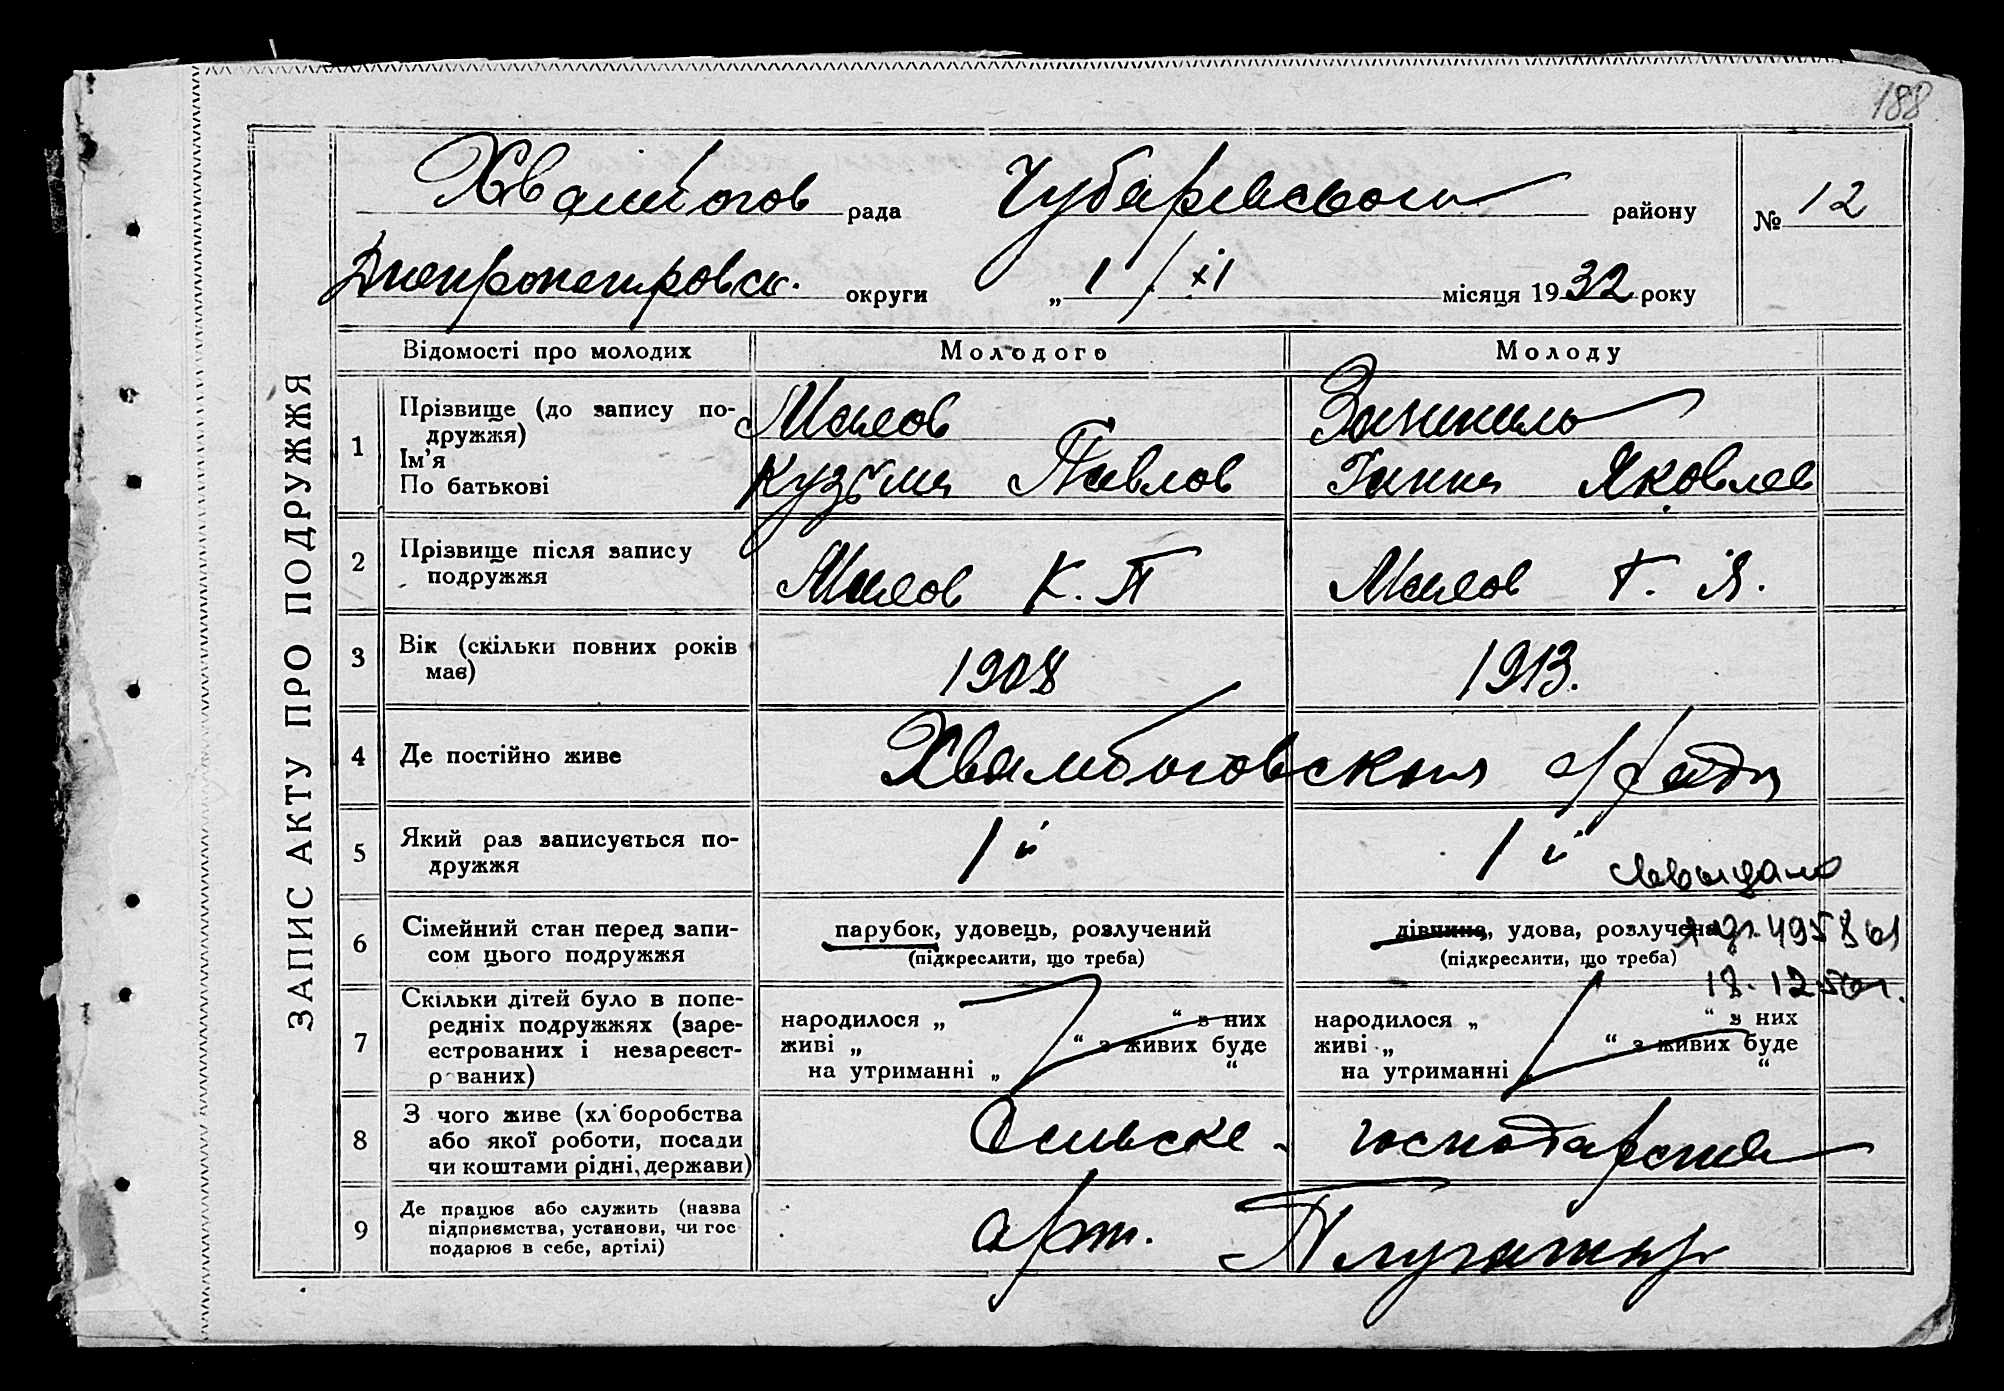 188
ЗАПИС АКТУ ПРО ПОДРУЖЖЯ
рада Чубаревського району № 12
Днепропетровск. округи „ 1 / XI місяця 1932 року
Відомості про молодих Молодого Молоду
1 Прізвище (до запису по-
дружжя)
Ім'я
По батькові
Малов
Кузьма Павлов
Ганна Яковлев
2 Прізвище після запису
подружжя
Малов К. П
Малов Г. Я.
3 Вік (скільки повних років
має)
1908 1913.
4 Де постійно живе
с/рада
5 Який раз записується по-
дружжя
1й 1й
6 Сімейний стан перед запи-
сом цього подружжя
парубок, удовець, розлучений
(підкреслити, що треба)
дівчина, удова, розлучена
(підкреслити, що треба)
7 Скільки дітей було в попе-
редніх подружжях (заре-
єстрованих і незареєст-
р ваних)
народилося „ “ з них
живі „ “ з живих буде
на утриманні „ “
народилося „ “ з них
живі „ “ з живих буде
на утриманні „ “
8 З чого живе (хл боробства
або якої роботи, посади
чи коштами рідні, держави)
Сельске - господарство
9 Де працює або служить (назва
підприємства, установи, чи гос
подарює в себе, артілі)
арт. Плугатар